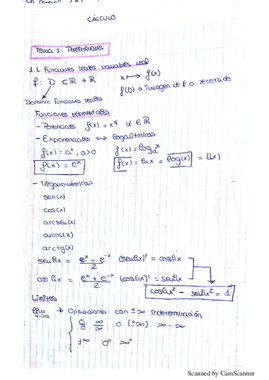 CÁLCULO
Tema 1: Preliminares
1.1. Funciones reales variables real
f: D ⊂ ℝ → ℝ    x ⟼ f(x)
f(D) → Imagen de f o recorrido
Dominio funciones reales
Funciones elementales
- Potenciales f(x) = x^α α ∈ ℝ
- Exponenciales ⟺ Logarítmicas
f(x) = a^x, a>0    f(x) = log_a x
f(x) = e^x    f(x) = ln x = log(x) = Lx
- Trigonométricas
sen(x)
cos(x)
arcsen(x)
arcos(x)
arctg(x)
senhx = (e^x - e^-x)/2    (senhx)' = coshx
coshx = (e^x + e^-x)/2    (coshx)' = senhx
coshx² - senhx² = 1
Límites
→ Operaciones con ±∞ Indeterminación
0/0    ∞/∞    0·(±∞);    ∞-∞
1^±∞    0^0    ∞^0
Scanned by CamScanner